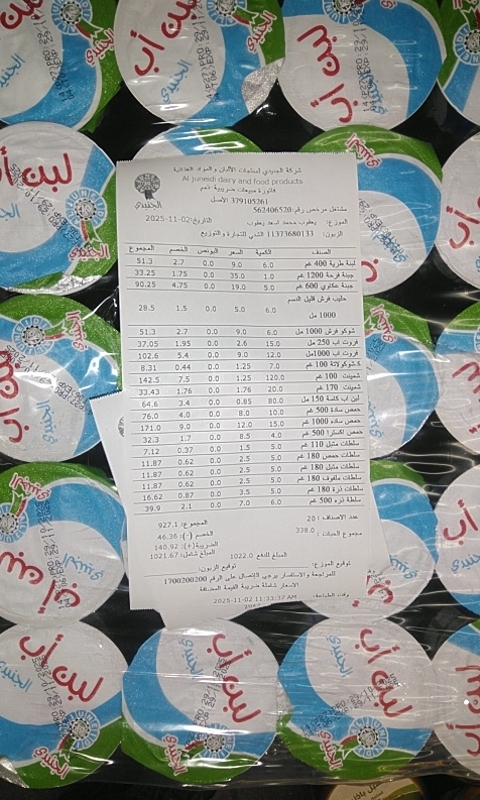 شركة الجنيدي لمنتجات الألبان والمواد الغذائية
Al junedi dairy and food products
فاتورة مبيعات ضريبية ذمم
379105261 الأصل
مشتغل مرخص رقم:562406520
الموزع: يعقوب محمد اسعد يعقوب التاريخ:02-11-2025
الزبون: 11373680133 للتجارة والتوزيع
الجنيدي
الصنف الكمية السعر البونص الخصم المجموع
لبنة طرية 400 غم 6.0 9.0 0.0 2.7 51.3
جبنة فرحة 1200 غم 1.0 35.0 0.0 1.75 33.25
جبنة عكاوي 600 غم 5.0 19.0 0.0 4.75 90.25
حليب فرش قليل الدسم 1000 مل 6.0 5.0 0.0 1.5 28.5
شوكو فرش 1000 مل 6.0 9.0 0.0 2.7 51.3
فروت اب 250 مل 15.0 2.6 0.0 1.95 37.05
فروت اب 1000مل 12.0 9.0 0.0 5.4 102.6
شوكولاتة 100 غم 7.0 1.25 0.0 0.44 8.31
شمينت 100 غم 120.0 1.25 0.0 7.5 142.5
شمينت 170 غم 20.0 1.76 0.0 1.76 33.43
لبن اب كاسة 150 مل 80.0 0.85 0.0 3.4 64.6
حمص سادة 500 غم 10.0 8.0 0.0 4.0 76.0
حمص سادة 1000 غم 15.0 12.0 0.0 9.0 171.0
حمص اكسترا 500 غم 4.0 8.5 0.0 1.7 32.3
سلطات متبل 110 غم 5.0 1.5 0.0 0.37 7.12
سلطات حمص 180 غم 5.0 2.5 0.0 0.62 11.87
سلطات متبل 180 غم 5.0 2.5 0.0 0.62 11.87
سلطات ملفوف 180 غم 5.0 2.5 0.0 0.62 11.87
سلطات ذرة 180 غم 5.0 3.5 0.0 0.87 16.62
سلطة ذرة 500 غم 6.0 7.0 0.0 2.1 39.9
عدد الاصناف: 20 المجموع: 927.1
مجموع الحبات: 338.0 الخصم (-): 46.36
الضريبة(+): 140.92
المبلغ للدفع 1022.0 المبلغ شامل: 1021.67
توقيع الموزع: توقيع الزبون:
للمراجعة والاستفسار يرجى الإتصال على الرقم 1700200200
الاسعار شاملة ضريبة القيمة المضافة
2025-11-02 11:33:37 AM
لبن أب
الجنيدي
لبن أب
الجنيدي
لبن أب
الجنيدي
لبن أب
الجنيدي
لبن أب
الجنيدي